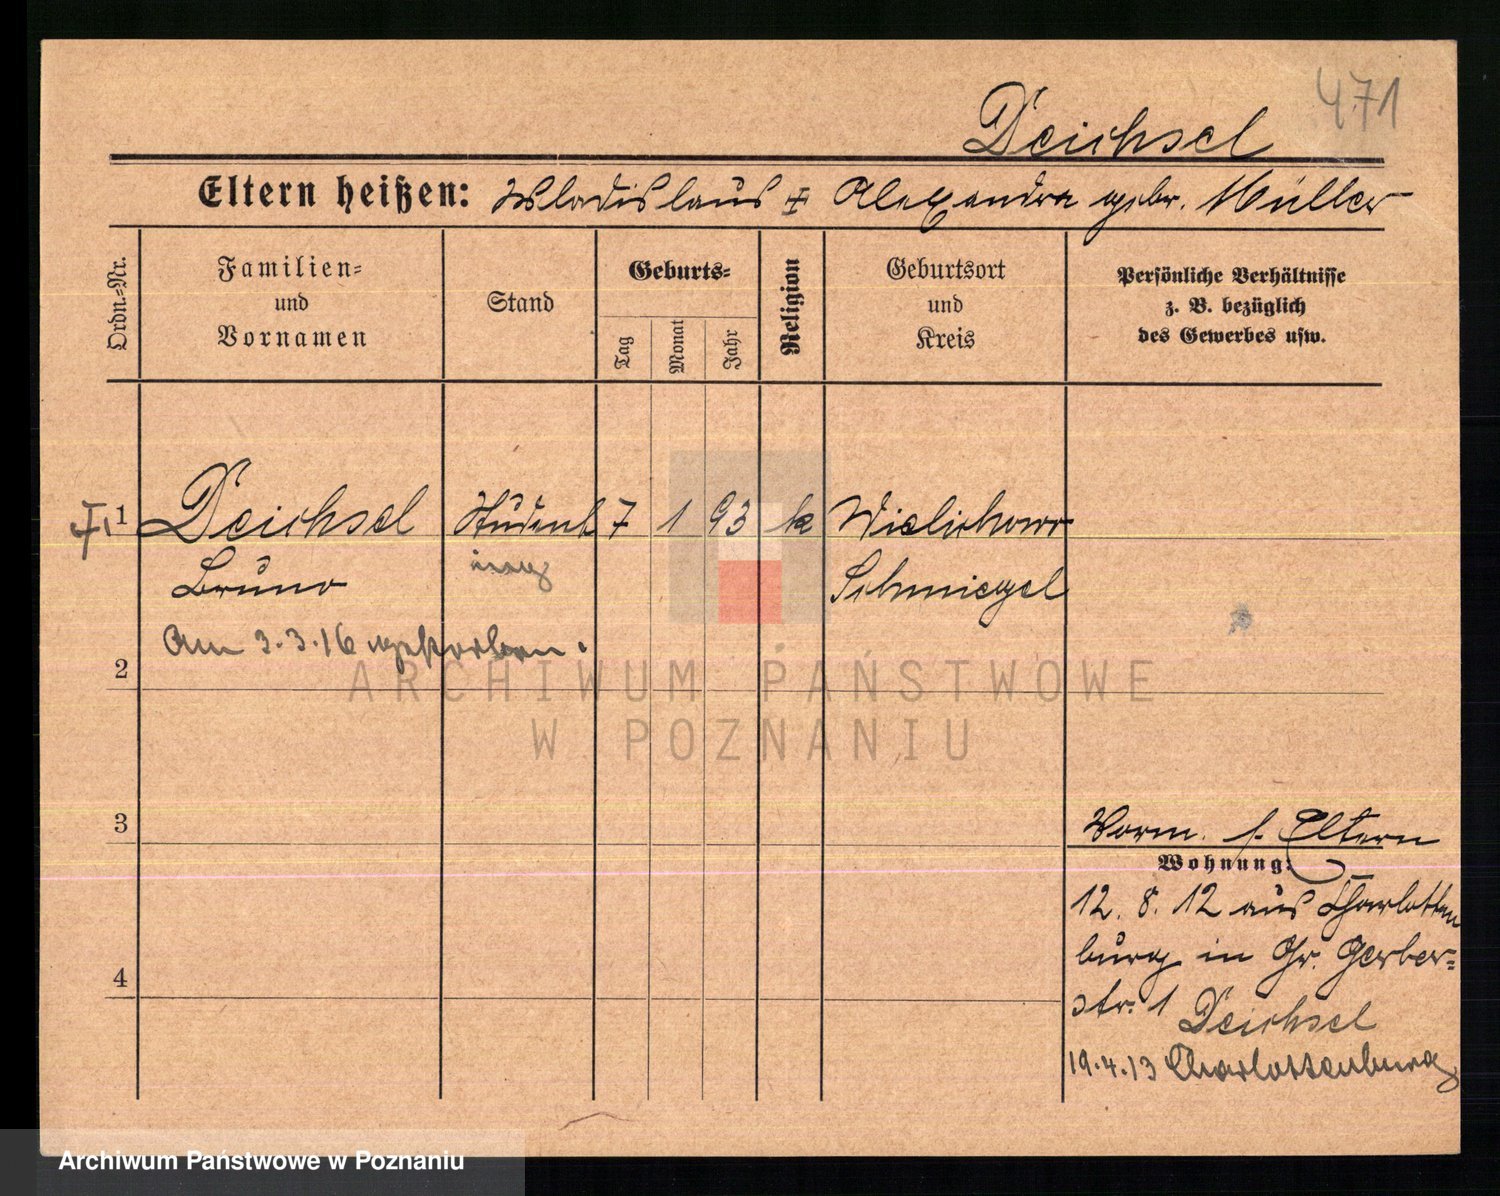 471
Deichsel
Eltern heißen: Wladislaus ‡ Alexandra gebr. Müller
Ordn.-Nr.
Familien-
und
Vornamen
Stand
Geburts-
Tag
Monat
Jahr
Religion
Geburtsort
und
Kreis
Persönliche Verhältnisse
z. B. bezüglich
des Gewerbes usw.
1 Deichsel Student 7 1 93 k Wielichowo
Bruno Schmiegel
Am 3.3.16 gestorben.
2
ARCHIWUM PAŃSTWOWE
W POZNANIU
3
Vorm. s. Eltern
Wohnung:
12. 8. 12 aus Charlotten
burg in Gr. Gerber-
4
str. 1 Deichsel
19.4.13 Charlottenburg
Archiwum Państwowe w Poznaniu